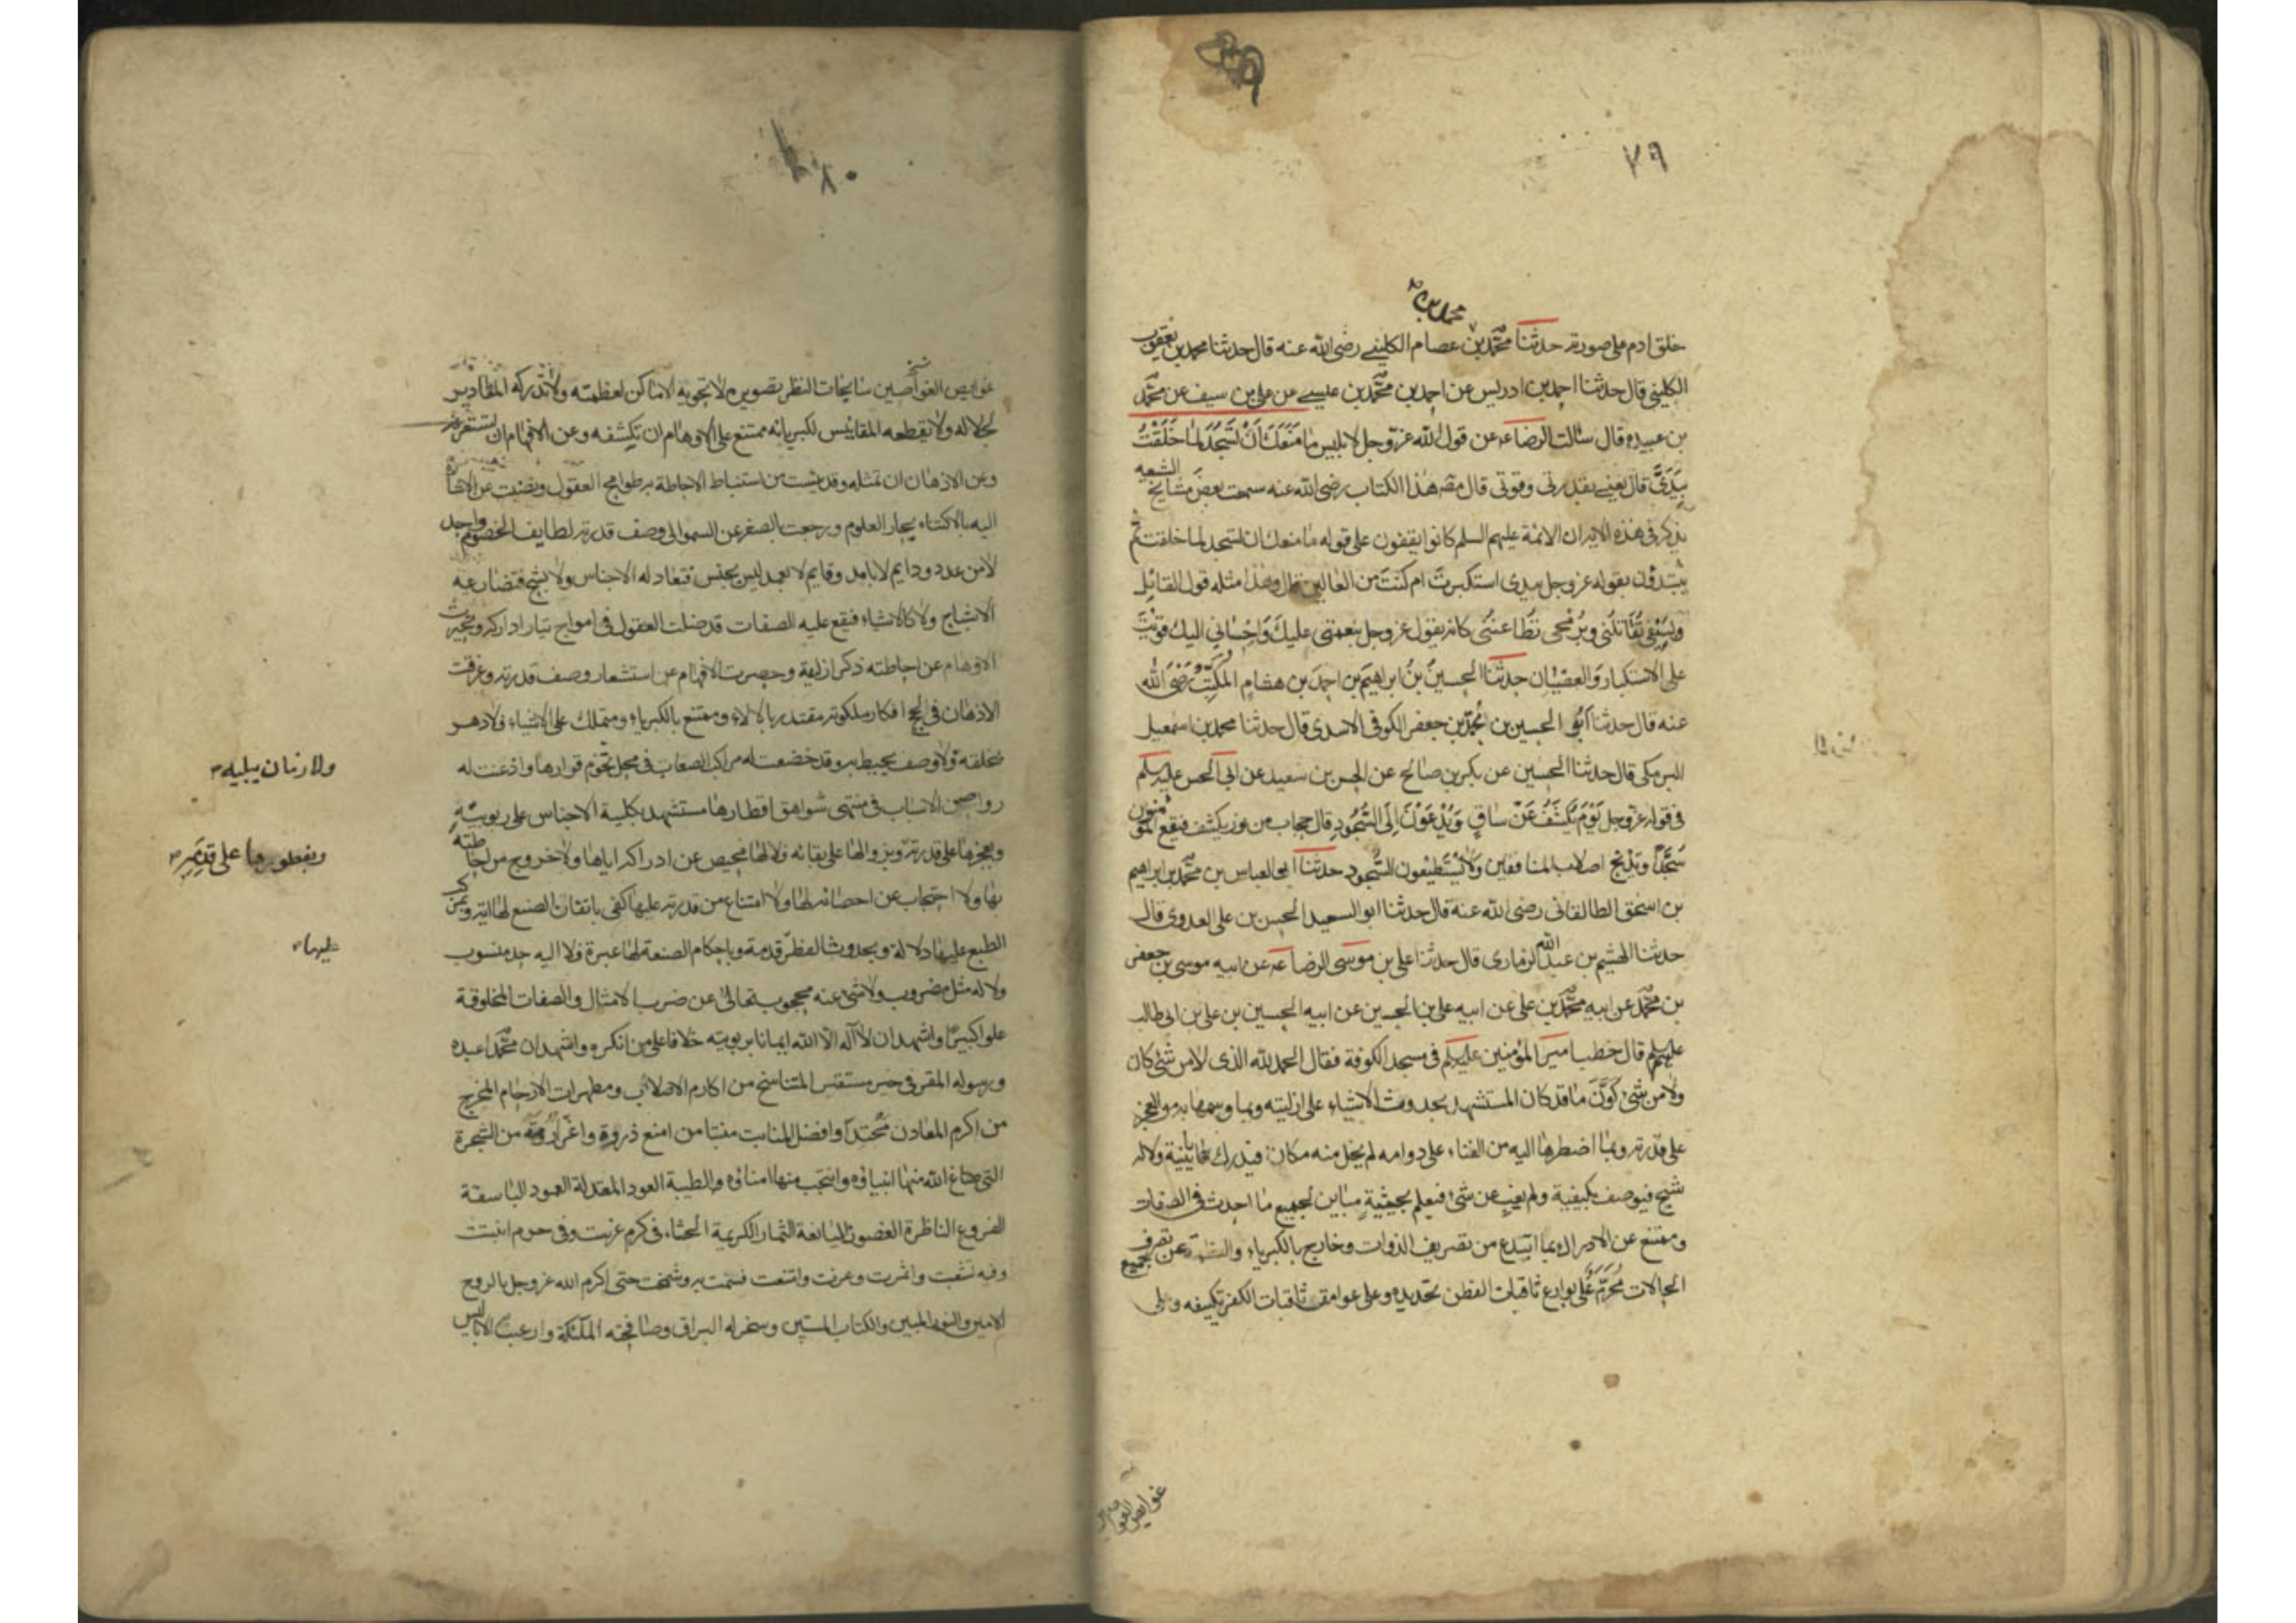 ٧٩
محمد بن
خلق ادم على صورته حدثنا محمد بن عصام الكليني رضى الله عنه قال حدثنا محمد بن يعقوب
الكليني قال حدثنا احمد بن ادريس عن احمد بن محمد بن عيسى عن على بن سيف عن محمد
بن عبيده قال سألت الرضا ع عن قول الله عز وجل لابليس ما مَنَعَكَ اَنْ تَسْجُدَ لِمَا خَلَقْتُ
بِيَدَىَّ قال يعني بقدرتي وقوتي قال مصـ هذا الكتاب رضى الله عنه سمعت بعض مشايخ الشيعه
يذكر في هذه الاية ان الائمة عليهم السلم كانوا يقفون على قوله ما منعك ان تسجد لما خلقت ثم
يبتدؤن بقوله عز وجل بيدى استكبرت ام كنت من العالين قال وهذا مثله قول القائل
وبسيفى تُقَاتلُنى وبرُمْحى تطَاعنُنى كانه يقول عز وجل بنعمتى عليكَ وَاِحْسَانى اليك قويتَ
على الاستكبار وَالعصْيان حدثنا الحسينُ بنُ ابراهيم بن احمَد بن هشام المُكَتِّبُ رَضىَ الله
عنه قال حدثنا اَبُو الحسين بن محمّد بن جعفر الكوفى الاسدى قال حدثنا محمد بن اسمعيل
البرمكى قال حدثنا الحسين عن بكر بن صالح عن الحسن بن سعيد عن ابى الحسن عليه السلم
فى قوله عز وجل يَوْمَ يُكْشَفُ عَنْ سَاقٍ وَيُدْعَوْنَ اِلَى السُّجُودِ قال حجاب من نور يكشف فيقع المؤمنون
سُجَّدًا وتدمج اصلاب المنافقين وَلَا يَسْتَطيعون السُّجود حدثنا ابو العباس بن محمّد بن ابراهيم
بن اسحق الطالقانى رضى الله عنه قال حدثنا ابو السعيد الحسن بن على العدوى قال
حدثنا الهشيم بن عبد الله الرمارى قال حدثنا على بن موسى الرضا ع عن ابيه موسى بن جعفر
بن محمّد عن ابيه محمّد بن على عن ابيه على بن الحسين عن ابيه الحسين بن على بن ابى طالب
عليهم السلم قال خطب امير المؤمنين عليه السلم فى مسجد الكوفة فقال الحمد لله الذى لا من شئ كان
ولا من شئ كَوَّنَ ما قد كان المستشهد بحدوث الاشياء على ازليته وبما وسمها به من العجز
على قدرته وبما اضطرها اليه من الفناء على دوامه لم يخل منه مكان فيدرك باينية ولا له
شبح فيوصف بكيفية ولم يغب عن شئ فيعلم بحيثيةٍ مباين لجميع ما احدث فى الصفات
وممتنع عن الادراك بما ابتدع من تصريف الذوات وخارج بالكبرياء والعظمة عن جميع تصرف
الحالات مُحَرَّم عَلى بوارع ثاقبات الفطن تحديده وعلى عوامق ثاقبات الفكر تكييفه وعلى
غوايص
٨٠
غوايص الغواصين سابحات النظر تصويره لا تحويه الاماكن لعظمته ولا تدركه المقادير
لجلاله ولا تقطعه المقاييس لكبريائه ممتنع على الاوهام ان تكتنهه وعن الافهام ان تستغرقه
وعن الاذهان ان تمثله وقد يئست من استنباط الاحاطة به طوامح العقول ونضبت عن الاشارة
اليه بالاكتناه بحار العلوم ورجعت بالصغر عن السمو الى وصف قدرته لطايف الخصوم واحد
لا من عدد ودايم لا بامد وقايم لا بعمد ليس بجنس فتعادله الاجناس ولا بشبح فتضارعه
الاشباح ولا كالاشياء فيقع عليه الصفات قد ضلت العقول فى امواج تيار ادراكه وتحيرت
الاوهام عن احاطته ذكر ازليته وحصرت الافهام عن استشعار وصف قدرته وغرقت
الاذهان فى لجج افكار ملكوته مقتدر بالالاء وممتنع بالكبرياء ومتملك على الاشياء فلا دهر
يخلقه ولا وصف يحيط به وقد خضعت له مراكب الصعاب فى محل تخوم قرارها واذعنت له
ولا زمان يبليه
رواصن الاسباب فى منتهى شواهق اقطارها مستشهد بكلية الاجناس على ربوبيته
وبعجزها على قدرته وبزوالها على بقائه فلا لها محيص عن ادراكه اياها ولا خروج من احاطته
وبفطورها على قدمته
بها ولا احتجاب عن احصائه لها ولا امتناع من قدرته عليها كفى باتقان الصنع لها اية وبمركب
الطبع عليها دلالة وبحدوث الفطر قدمة وباحكام الصنعة لها عبرة فلا اليه حد منسوب
عليها
ولا له مثل مضروب ولا شئ عنه محجوب تعالى عن ضرب الامثال والصفات المخلوقة
علوا كبيرًا واشهد ان لا اله الا الله ايمانا بربوبيته خلافا على من انكره واشهد ان محمّدا عبده
ورسوله المقر فى خير مستقر المتناسخ من اكارم الاصلاب ومطهرات الارحام المخرج
من اكرم المعادن محتدًا وافضل المنابت منبتا من امنع ذروة واعز ارومة من الشجرة
التى صاغ الله منها انبياؤه وانتجب منها امناؤه والطيبة العود المعتدلة العمود الباسقة
الفروع الناظرة الغصون اليانعة الثمار الكريمة الحشاء فى كرم غرست وفى حرم انبتت
وفيه تشعبت واثمرت وعزت وامتنعت فسمت به وشمخت حتى اكرم الله عز وجل بالروح
الامين والنور المبين والكتاب المستبين وسخر له البراق وصافحته الملئكة وارعبت الاباليس